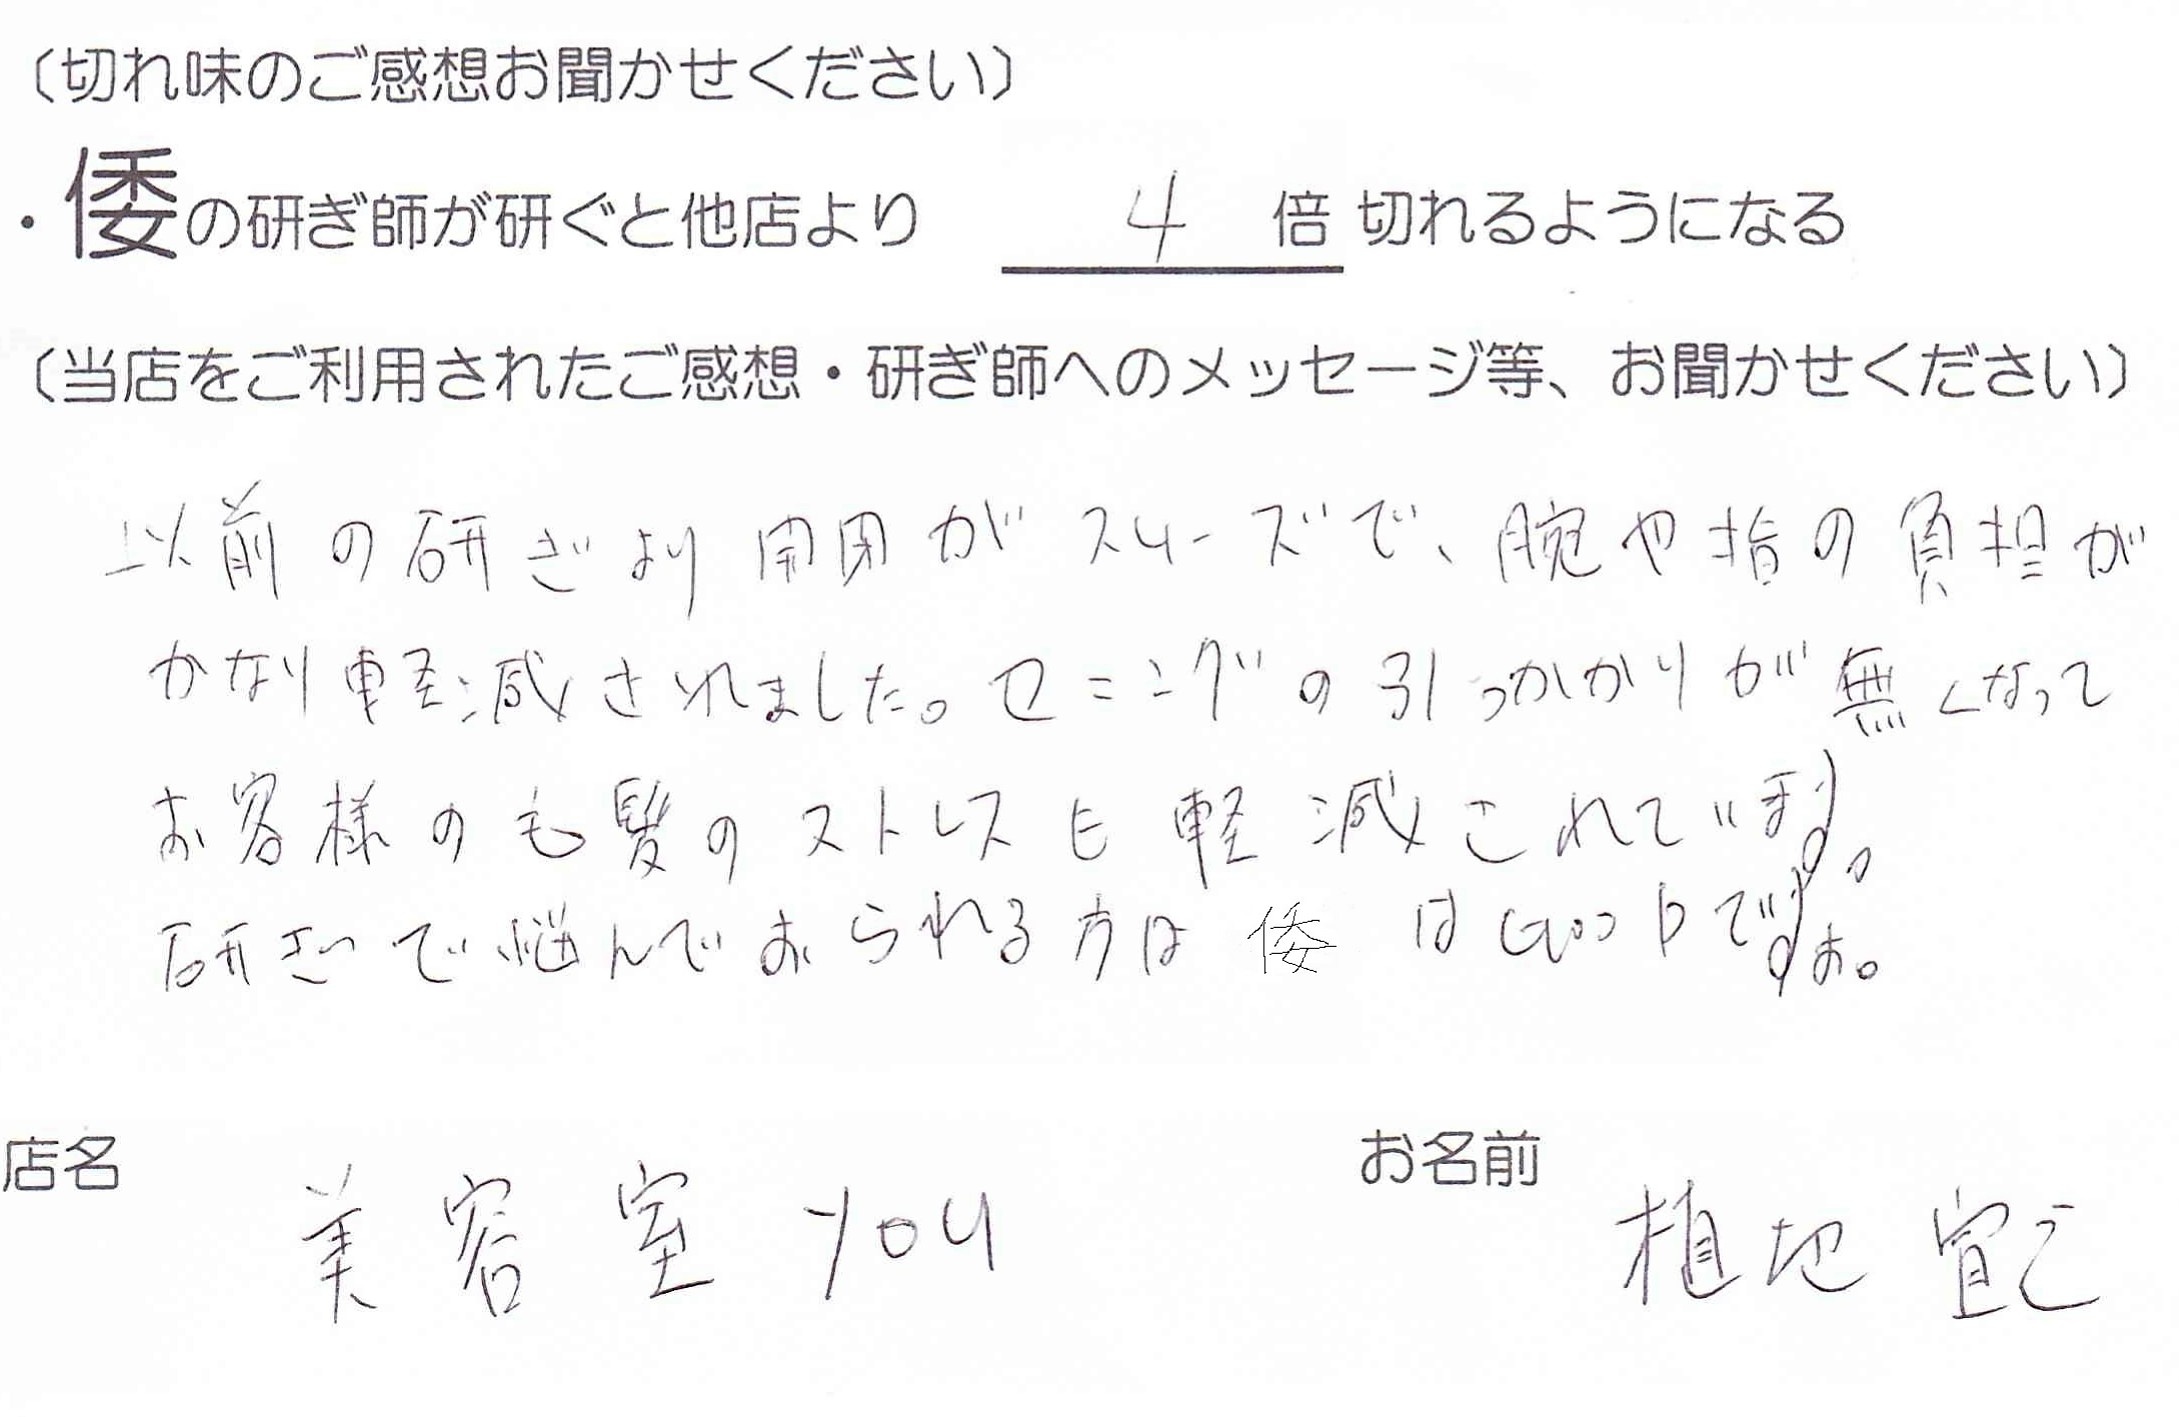 （切れ味のご感想お聞かせください）
・倭の研ぎ師が研ぐと他店より 4 倍 切れるようになる
（当店をご利用されたご感想・研ぎ師へのメッセージ等、お聞かせください）
以前の研ぎより開閉がスムーズで、腕や指の負担が
かなり軽減されました。セニングの引っかかりが無くなって
お客様の毛髪のストレスも軽減されています。
研ぎで悩んでおられる方は 倭 はGOODですよ。
店名 美容室 YOU お名前 植地 宜